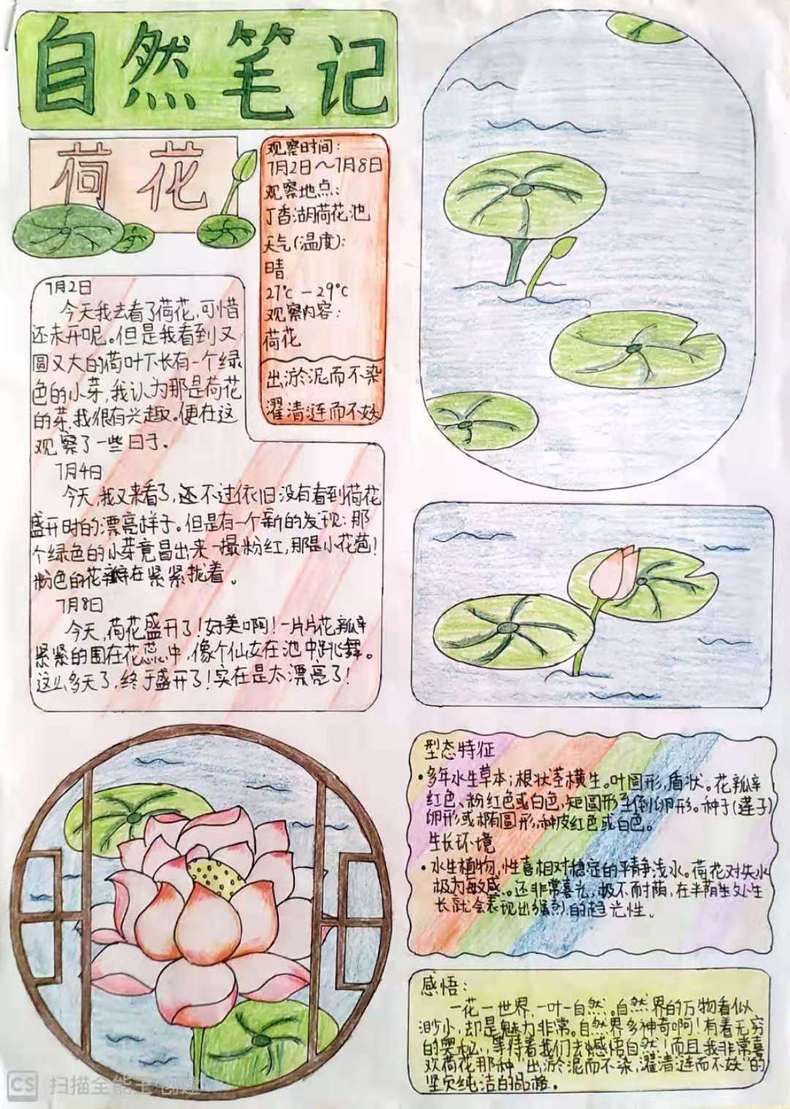 自然笔记
荷花
观察时间:
7月2日～7月8日
观察地点:
丁香湖荷花池
天气(温度):
晴
21℃－29℃
观察内容:
荷花
出淤泥而不染
濯清涟而不妖
7月2日
今天我去看了荷花,可惜
还未开呢。但是我看到又
圆又大的荷叶下长有一个绿
色的小芽,我认为那是荷花
的芽,我很有兴趣。便在这
观察了一些日子.
7月4日
今天,我又来看了,还不过依旧没有看到荷花
盛开时的漂亮样子。但是有一个新的发现:那
个绿色的小芽竟冒出来一撮粉红,那是小花苞!
粉色的花瓣在紧紧拢着。
7月8日
今天,荷花盛开了!好美啊!一片片花瓣
紧紧的围在花蕊中,像个仙女在池中跳舞。
这么多天了,终于盛开了!实在是太漂亮了!
型态特征
·多年水生草本;根状茎横生。叶圆形,盾状。花瓣
红色、粉红色或白色,矩圆形至倒卵形。种子(莲子)
卵形或椭圆形,种皮红色或白色。
生长环境
·水生植物,性喜相对稳定的平静浅水。荷花对失水
极为敏感。还非常喜光,极不耐荫,在半荫处生
长就会表现出强烈的趋光性。
感悟:
一花一世界,一叶一自然。自然界的万物看似
渺小,却是魅力非常。自然界多神奇啊!有着无穷
的奥秘,等待着我们去感悟自然!而且我非常喜
欢荷花那种,出淤泥而不染,濯清涟而不妖的
坚贞纯洁的品格。
CS 扫描全能王